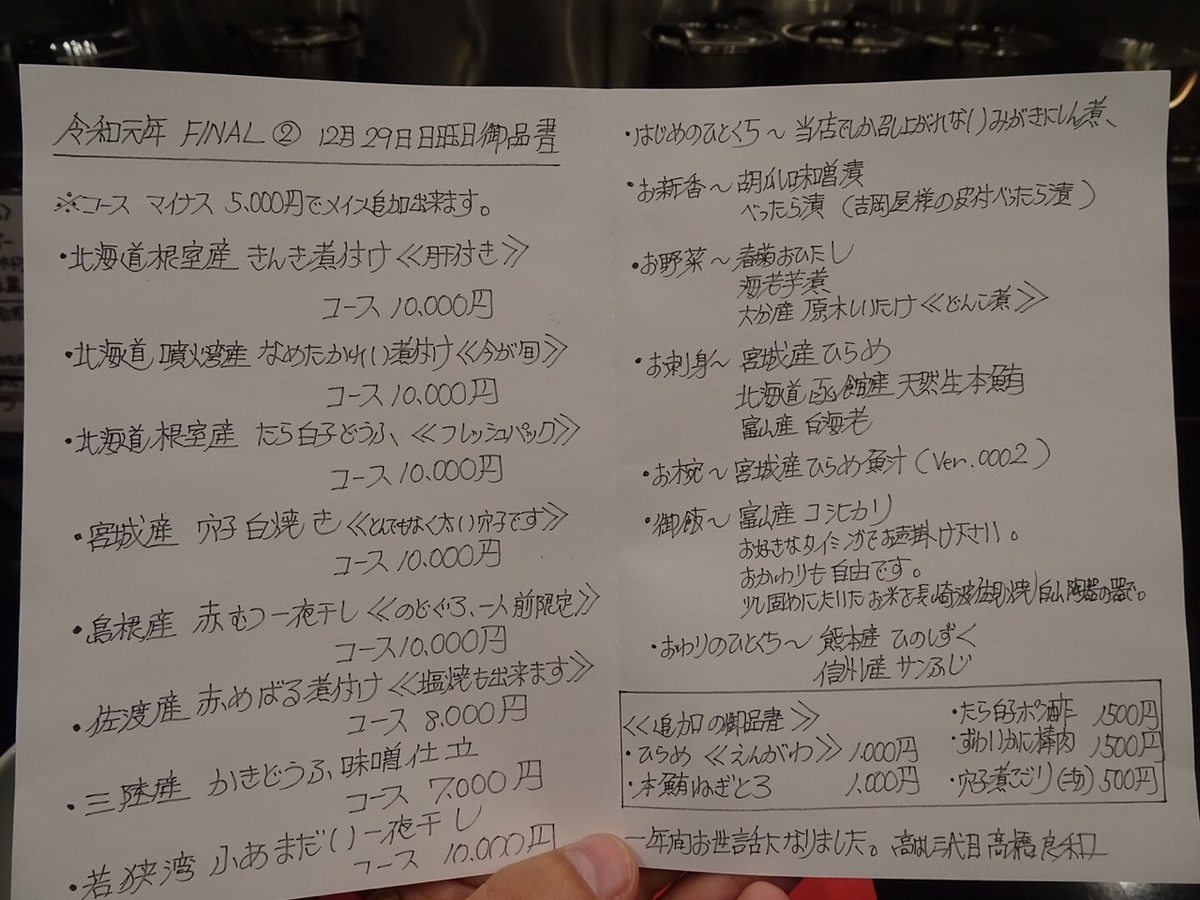 令和元年 FINAL② 12月29日日曜日御品書
※コース マイナス 5,000円でメイン追加出来ます。
・北海道根室産 きんき煮付け≪肝付き≫
コース 10,000円
・北海道噴火湾産 なめたかれい煮付け≪今が旬≫
コース 10,000円
・北海道根室産 たら白子どうふ、≪フレッシュパック≫
コース 10,000円
・宮城産 穴子白焼き≪とんでもなく太い穴子です≫
コース 10,000円
・島根産 赤むつ一夜干し≪のどぐろ、一人前限定≫
コース 10,000円
・佐渡産 赤めばる煮付け≪塩焼も出来ます≫
コース 8,000円
・三陸産 かきどうふ、味噌仕立
コース 7,000円
・若狭湾 小あまだい一夜干し
コース 10,000円
・はじめのひとくち～ 当店でしか召し上がれないみがきにしん煮、
・お新香～ 胡瓜味噌漬
べったら漬 (吉岡屋様の皮付べったら漬)
・お野菜～ 春菊おひたし
海老芋煮
大分産 原木しいたけ≪どんこ煮≫
・お刺身～ 宮城産ひらめ
北海道函館産 天然生本鮪
富山産 白海老
・お椀～ 宮城産ひらめ魚汁(Ver.0002)
・御飯～ 富山産 コシヒカリ
お好きなタイミングでお声掛け下さい。
おかわりも自由です。
少し固めにたいたお米を長崎波佐見焼/白山陶器の器で。
・おわりのひとくち～ 熊本産 ひのしずく
信州産 サンふじ
≪追加の御品書≫
・ひらめ≪えんがわ≫ 1,000円
・本鮪ねぎとろ 1,000円
・たら白子ポン酢 1500円
・ずわいかに棒肉 1500円
・穴子煮こごり 500円
一年間お世話になりました。高はし三代目 高橋良和